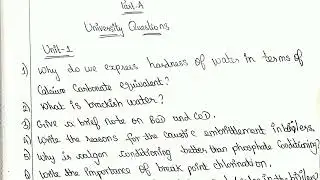 Part-A
University Questions
Unit-1
1) Why do we express hardness of water in terms of
Calcium Carbonate equivalent?
2) What is brackish water?
3) Give a brief note on BOD and COD.
4) Write the reasons for the caustic embrittlement in boilers.
5) Why is calgon conditioning better than phosphate conditioning?
6) Write the importance of break point chlorination.
in the boilers